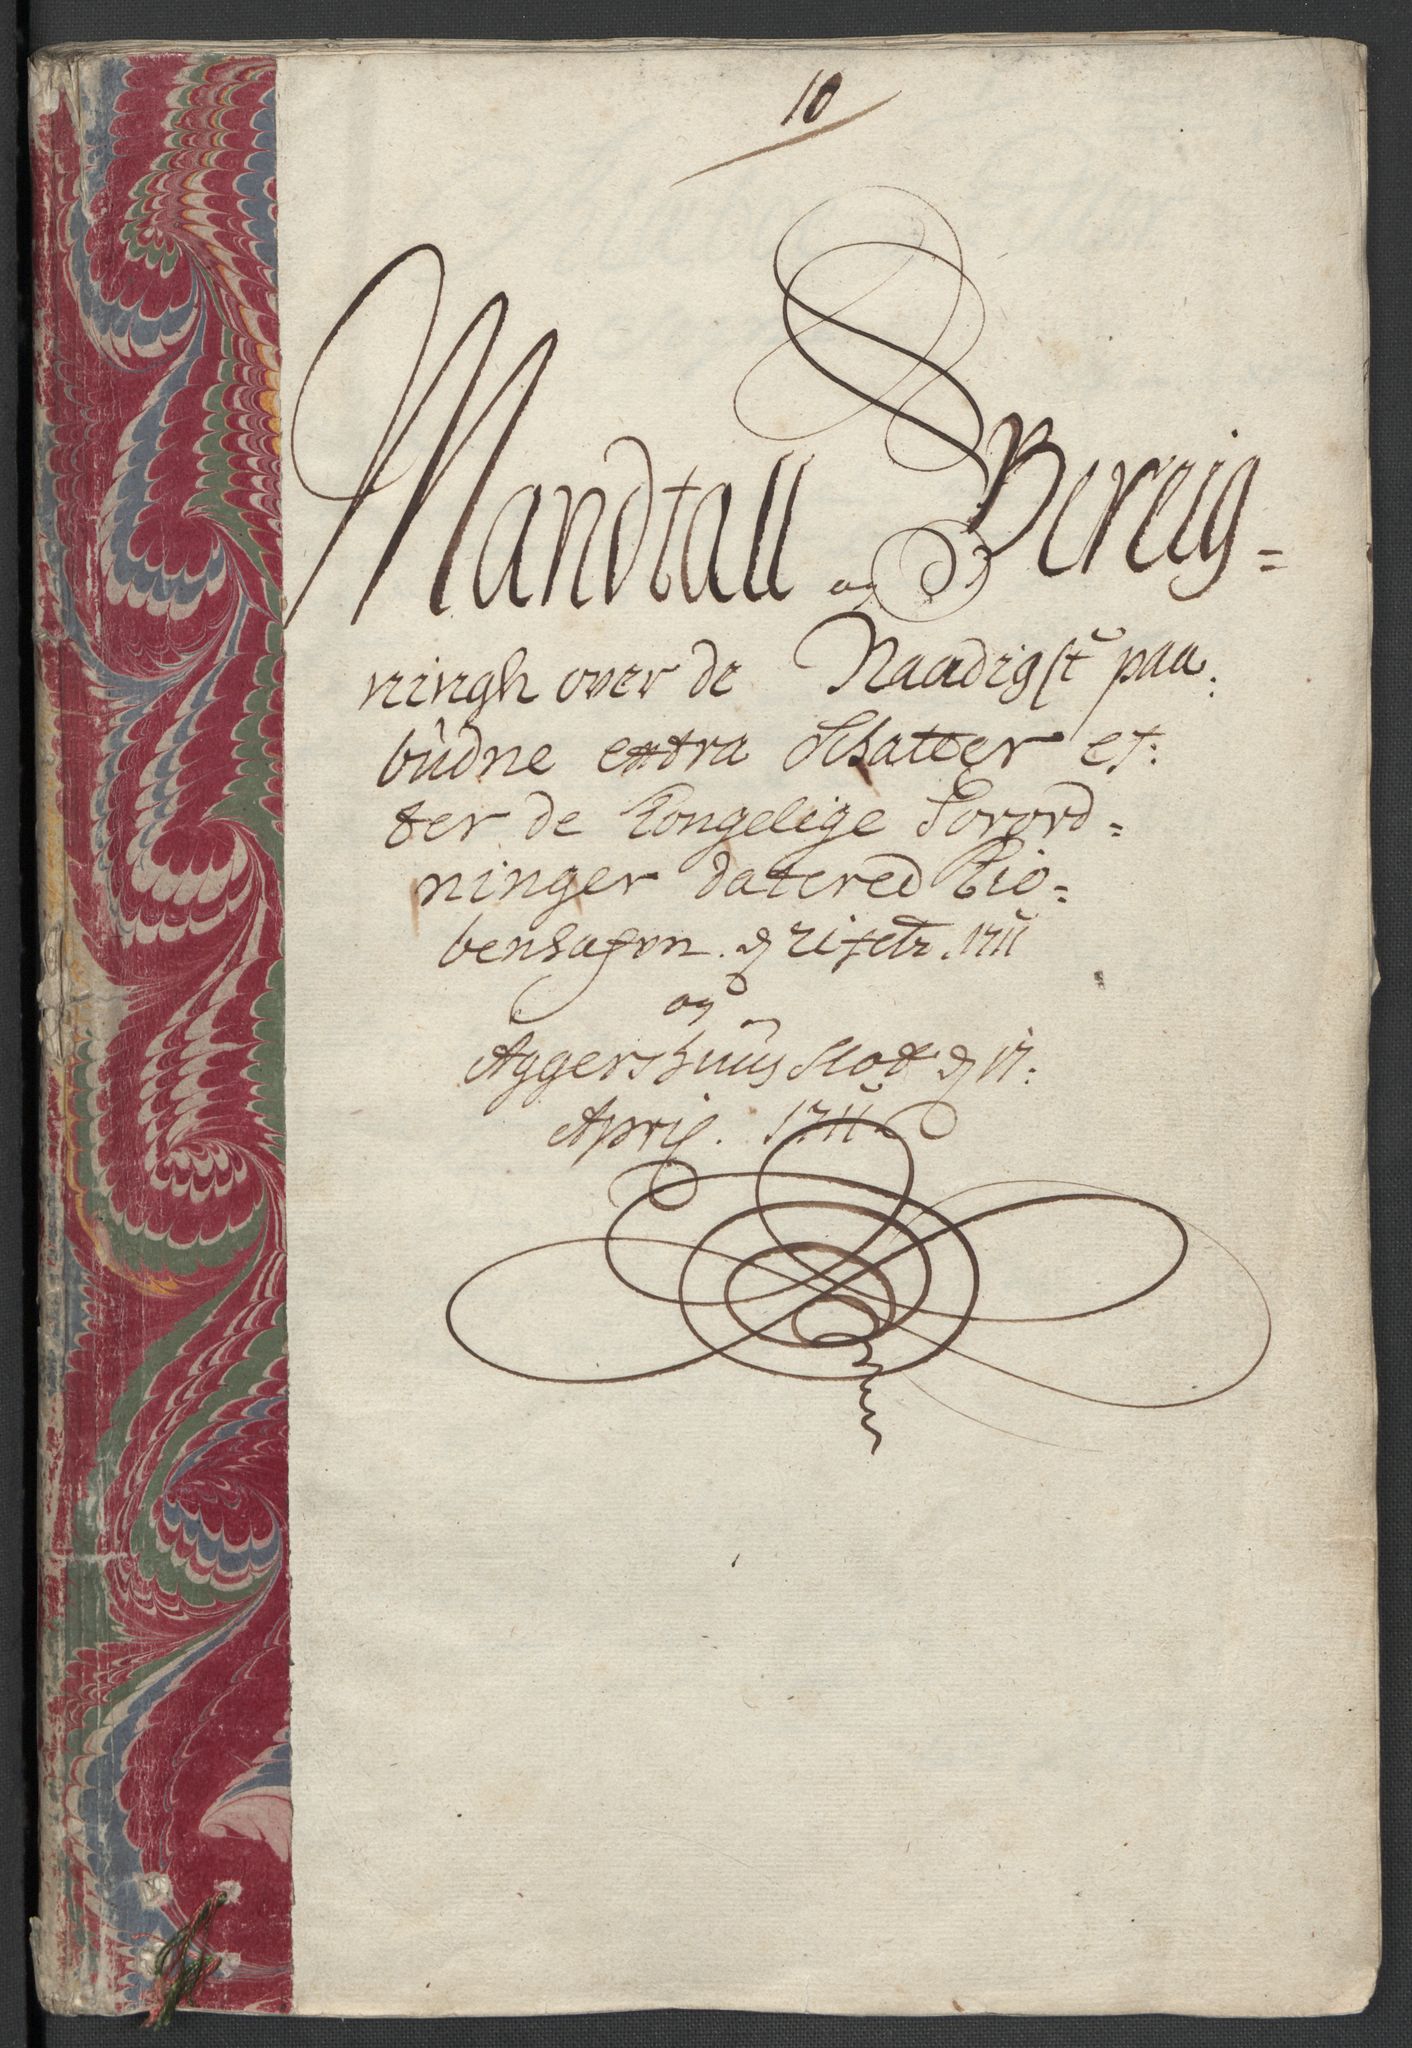 10
Mandtall og Bereig=
ningh over de Naadigst paa:
budne extra Schatter ef:
ter de kongelige Forord=
ninger datered Kio=
benhafen. d 21 febr. 1711
og
Aggershuus Slot d 17:
April. 1711.